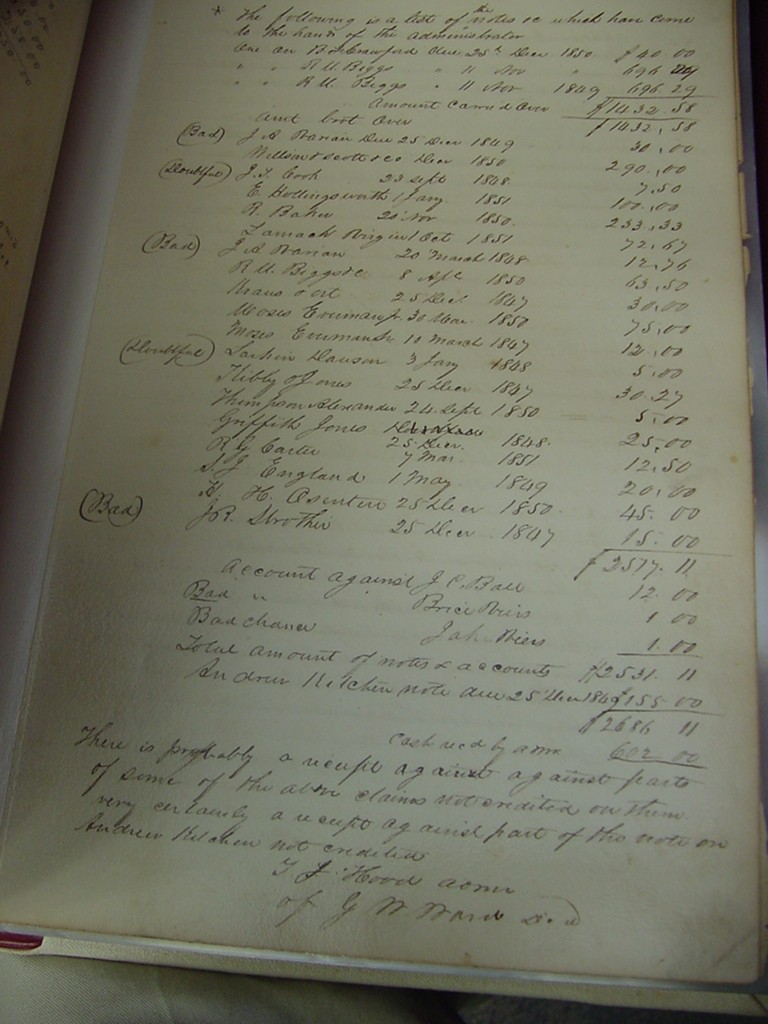 * The following is a list of the notes &c which have come
to the hands of the administrator
One on B F Crawford due 25th Decr 1850 $40.00
" " R M Biggs " 11 Nov " 696.29
" " R M Biggs " 11 Nov 1849 696.29
Amount Carried Over $1432.58
amt brot Over $1432.58
(Bad) J A Due 25 Decr 1849 30.00
scott & co Decr 1850 290.00
(Doubtful) J. T. Cook 23 Sept 1848 7.50
E Hollingsworth 1 Jany 1851 100.00
R. Baker 20 Nov 1850 233.33
1 Oct 1851 72.67
(Bad) J A 20 March 1848 12.76
R M Biggs &c 8 Apl 1850 63.50
25 Decr 1847 30.00
Moses 30 1850 75.00
Moses 10 March 1847 12.00
(Doubtful) Larkin Dawson 3 Jany 1848 5.00
Kibby & Jones 25 Decr 1847 30.27
Thompson Alexander 24 Sept 1850 5.00
Griffith Jones 25 Decr 1848 25.00
R G Carter 7 Mar 1851 12.50
S. J England 1 May 1849 20.00
H. 25 Decr 1850 45.00
(Bad) J R. Strother 25 Decr 1847 15.00
$2517.11
Account against J C Ball 12.00
Bad " Brice 1 00
Bad chance 1.00
Total amount of notes & accounts $2531.11
Andrew Kitchen note due 25 Decr 1849 $155.00
$2686 11
Cash recd by admr 602 00
There is probably a receipt against against parts
of some of the above claims not credited on them
very certainly a receipt against part of the note on
Andrew Kitchen not credited
T J Hood admr
of G W Ward Decd